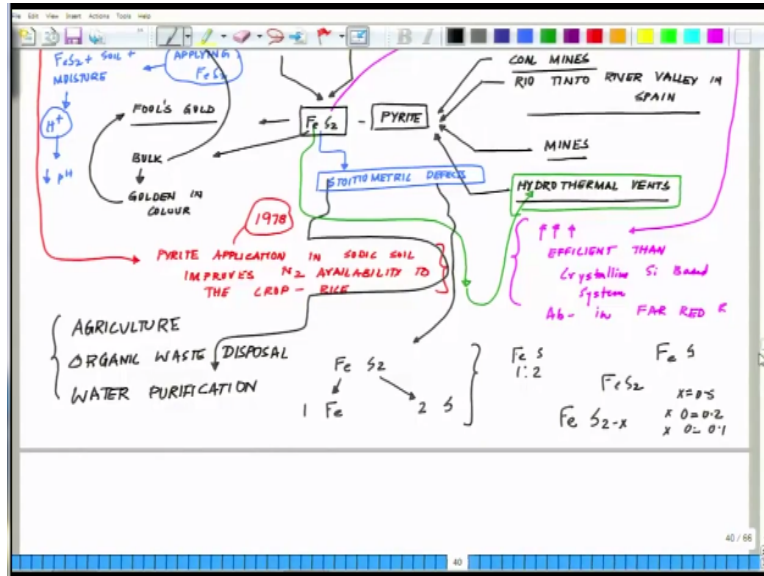 FeS2 + SOIL +
MOISTURE
APPLYING
FeS2
H+
↓ pH
FOOL'S GOLD
BULK
GOLDEN IN
COLOUR
FeS2 - PYRITE
COAL MINES
RIO TINTO RIVER VALLEY IN
SPAIN
MINES
HYDROTHERMAL VENTS
STOITIOMETRIC DEFECTS
1978
PYRITE APPLICATION IN SODIC SOIL
IMPROVES N2 AVAILABILITY TO
THE CROP - RICE
↑ ↑ ↑
EFFICIENT THAN
Crystalline Si Based
System
Ab- in FAR RED &
AGRICULTURE
ORGANIC WASTE DISPOSAL
WATER PURIFICATION
Fe S2
1 Fe 2 S
Fe S
1:2
Fe S
FeS2
Fe S2-x
x=0.5
x 0=0.2
x 0=0.1
40 / 66
40